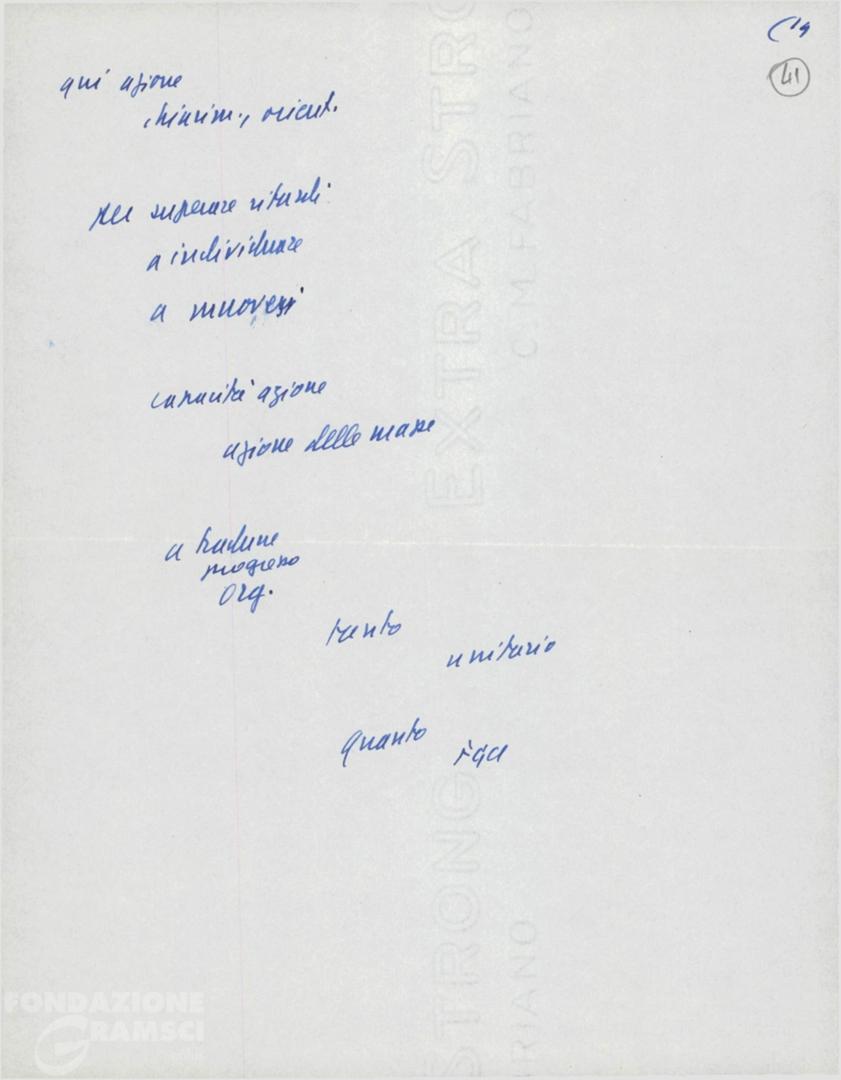 (14
41
qui azione
chiarim., orient.
per superare ritardi
a individuare
a muoversi
capacità azione
azione delle masse
a tradurre
progresso
org.
tanto
unitario
quanto
FGCI
EXTRA STRONG
C.M.FABRIANO
STRONG
RIANO
FONDAZIONE
GRAMSCI